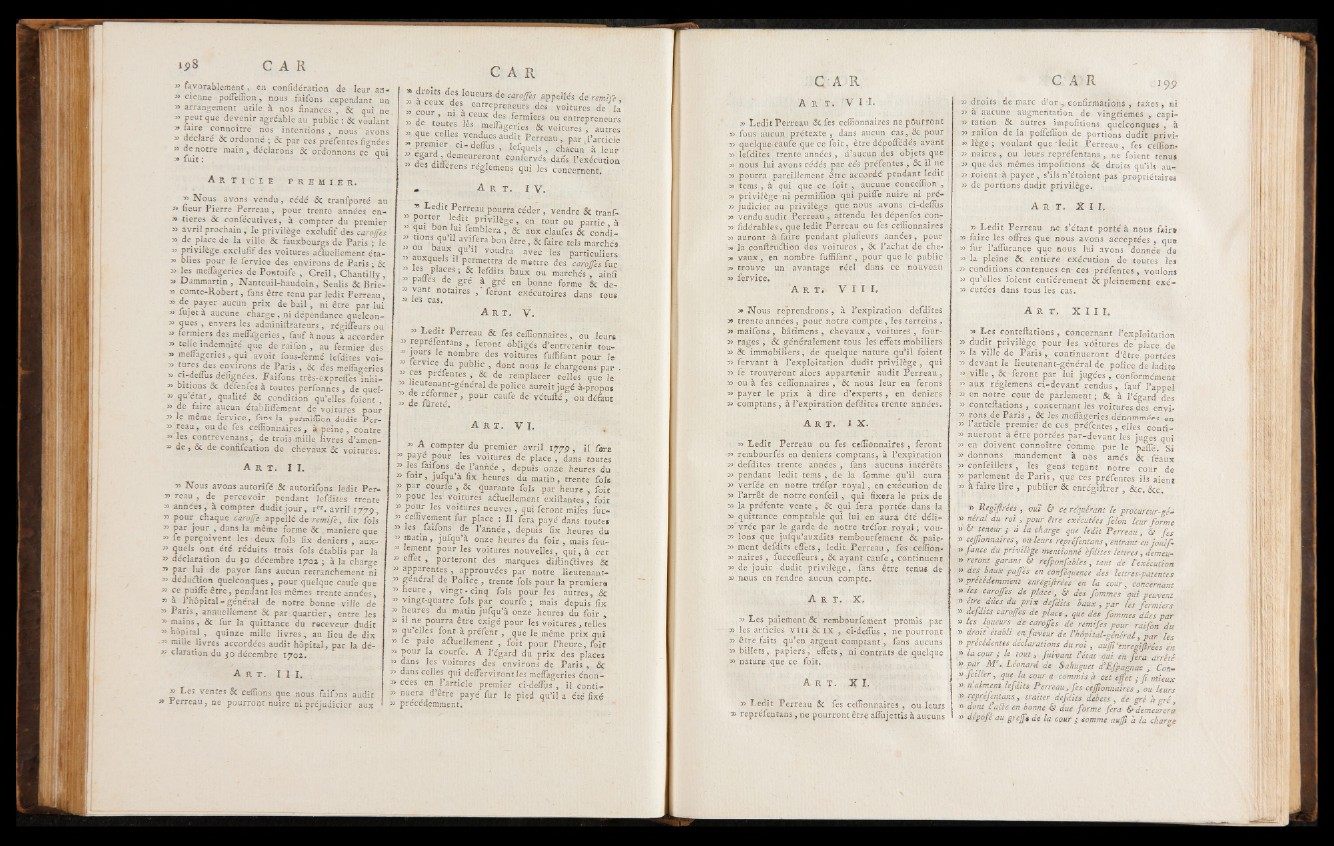 198 C A R
» favorablement, en conſidération de leur an-
» cienne poſſeſſion, nous faiſons cependant un
» arrangement utile à nos finances, & qui ne
» peut que devenir agréable au public : & voulant
» faire connoître nos intentions, nous avons
» déclaré & ordonné ; & par ces préſentes ſignées
» de notre main, déclarons & ordonnons ce qui
» ſuit :
ARTICLE PREMIER.
» Nous avons vendu, cédé & tranſporté au
» ſieur Pierre Perreau, pour trente années en-
» tieres & conſécutives, à compter du premier
» avril prochain, le privilège excluſif des caroſſes
» de place de la ville & fauxbourgs de Paris ; le
» privilège excluſif des voitures actuellement éta-
» blies pour le ſervice des environs de Paris ; &
» les meſſageries de Pontoiſe, Creil, Chantilly,
» Dammartin, Nanteuil-haudoin, Senlis & Brie-
» comte-Robert, ſans être tenu par ledit Perreau,
» de payer aucun prix de bail, ni être par lui
» ſujet à aucune charge, ni dépendance quelcon-
» ques, envers les adminiſtrateurs, régiſſeurs ou
» fermiers des meſſageries, ſauf à nous à accorder
» telle indemnité que de raiſon, au fermier des
» meſſageries, qui avoit ſous-fermé leſdites voi-
» tures des environs de Paris, & des meſſageries
» ci-deſſus déſignées. Faiſons très-expreſſes inhi-
» bitions & défenſes à toutes perſonnes, de quel-
» qu'état, qualité & condition qu'elles ſoient,
» de faire aucun établiſſement de voitures pour
» le même ſervice, ſans la permiſſion dudit Per-
» reau, ou de ſes ceſſionnaires, à peine, contre
» les contrevenans, de trois mille livres d'amen-
» de, & de confiſcation de chevaux & voitures.
ART. II.
» Nous avons autoriſé & autoriſons ledit Per-
» reau, de percevoir pendant leſdites trente
» années, à compter dudit jour, 1er. avril 1779,
» pour chaque caroſſe appellé de remiſe, ſix ſols
» par jour, dans la même forme & maniere que
» ſe perçoivent les deux ſols ſix deniers, aux-
» quels ont été réduits trois ſols établis par la
» déclaration du 30 décembre 1702 ; à la charge
» par lui de payer ſans aucun retranchement ni
» déduction quelconques, pour quelque cauſe que
» ce puiſſe être, pendant les mêmes trente années,
» à l'hôpital-général de notre bonne ville de
» Paris, annuellement & par quartier, entre les
» mains, & ſur la quittance du receveur dudit
» hôpital, quinze mille livres, au lieu de dix
» mille livres accordées audit hôpital, par la dé-
» claration du 30 décembre 1702.
ART. III.
» Les ventes & ceſſions que nous faiſons audit
» Perreau, ne pourront nuire ni préjudicier aux
C A R
» droits des loueurs de caroſſes appellés de remiſe,
» à ceux des entrepreneurs des voitures de la
» cour, ni à ceux des fermiers ou entrepreneurs
» de toutes les meſſageries & voitures, autres
» que celles vendues audit Perreau, par l'article
» premier ci-deſſus, leſquels, chacun à leur
» égard, demeureront conſervés dans l'exécution
» des différens réglemens qui les concernent.
ART. IV.
» Ledit Perreau pourra céder, vendre & tranſ-
» porter ledit privilège, en tout ou partie, à
» qui bon lui ſemblera, & aux clauſes & condi-
» tions qu'il aviſera bon être, & faire tels marchés
» ou baux qu'il voudra avec les particuliers
» auxquels il permettra de mettre des caroſſes ſur
» les places ; & leſdits baux ou marchés, ainſi
» paſſés de gré à gré en bonne forme & de-
» vant notaires, ſeront exécutoires dans tous
» les cas.
ART. V.
» Ledit Perreau & ſes ceſſionnaires, ou leurs
» repréſentans, ſeront obligés d'entretenir tou-
» jours le nombre des voitures ſuffiſant pour le
» ſervice du public, dont nous le chargeons par
» ces préſentes, & de remplacer celles que le
» lieutenant-général de police auroit jugé à-propos
» de réformer, pour cauſe de vétuſté, ou défaut
» de ſûreté.
ART. VI.
» A compter du premier avril 1779, il ſera
» payé pour les voitures de place, dans toutes
» les ſaiſons de l'année, depuis onze heures du
» ſoir, juſqu'à ſix heures du matin, trente ſols
» par courſe, & quarante ſols par heure, ſoit
» pour les voitures actuellement exiſtantes, ſoit
» pour les voitures neuves, qui ſeront miſes ſuc-
» ceſſivement ſur place : Il ſera payé dans toutes
» les ſaiſons de l'année, depuis ſix heures du
» matin, juſqu'à onze heures du ſoir, mais ſeu-
» lement pour les voitures nouvelles, qui, à cet
» effet, porteront des marques diſtinctives &
» apparentes, approuvées par notre lieutenant-
» général de Police, trente ſols pour la premiere
» heure, vingt-cinq ſols pour les autres, &
» vingt-quatre ſols par courſe ; mais depuis ſix
» heures du matin juſqu'à onze heures du ſoir,
» il ne pourra être exigé pour les voitures, telles
» qu'elles ſont à préſent, que le même prix qui
» ſe paie actuellement, ſoit pour l'heure, ſoit
» pour la courſe. A l'égard du prix des places
» dans les voitures des environs de Paris, &
» dans celles qui deſſerviront les meſſageries énon-
» cées en l'article premier ci-deſſus, il conti-
» nuera d'être payé ſur le pied qu'il a été fixé
» précédemment.
C A R
ART. VII.
» Ledit Perreau & ſes ceſſionnaires ne pourront
» ſous aucun prétexte, dans aucun cas, & pour
» quelque cauſe que ce ſoit, être dépoſſédés avant
» leſdites trente années, d'aucun des objets que
» nous lui avons cédés par ces préſentes, & il ne
» pourra pareillement être accordé pendant ledit
» tems, à qui que ce ſoit, aucune conceſſion,
» privilège ni permiſſion qui puiſſe nuire ni pré-
» judicier au privilège que nous avons ci-deſſus
» vendu audit Perreau, attendu les dépenſes con-
» ſidérables, que ledit Perreau ou ſes ceſſionnaires
» auront à faire pendant pluſieurs années, pour
» la conſtruction des voitures, & l'achat de che-
» vaux, en nombre ſuffiſant, pour que le public
» trouve un avantage réel dans ce nouveau
» ſervice.
ART. VIII.
» Nous reprendrons, à l'expiration deſdites
» trente années, pour notre compte, les terreins,
» maiſons, bâtimens, chevaux, voitures, four-
» rages, & généralement tous les effets mobiliers
» & immobiliers, de quelque nature qu'ils ſoient
» ſervant à l'exploitation dudit privilège, qui
» ſe trouveront alors appartenir audit Perreau,
» ou à ſes ceſſionnaires, & nous leur en ferons
» payer le prix à dire d'experts, en deniers
» comptans, à l'expiration deſdites trente années.
ART. IX.
» Ledit Perreau ou ſes ceſſionnaires, ſeront
» rembourſés en deniers comptans, à l'expiration
» deſdites trente années, ſans aucuns intérêts
» pendant ledit tems, de la ſomme qu'il aura
» verſée en notre tréſor royal, en exécution de
» l'arrêt de notre conſeil, qui fixera le prix de
» la préſente vente, & qui ſera portée dans la
» quittance comptable qui lui en aura été déli-
» vrée par le garde de notre tréſor royal ; vou-
» lons que juſqu'auxdits rembourſement & paie-
» ment deſdits effets, ledit Perreau, ſes ceſſion-
» naires, ſucceſſeurs, & ayant cauſe, continuent
» de jouir dudit privilège, ſans être tenus de
» nous en rendre aucun compte.
ART. X.
» Les paiement & rembourſement promis par
» les articles VIII & IX, ci-deſſus, ne pourront
» être faits qu'en argent comptant, ſans aucuns
» billets, papiers, effets, ni contrats de quelque
» nature que ce ſoit.
ART. XI.
» Ledit Perreau & ſes ceſſionnaires, ou leurs
» repréſentans, ne pourront être aſſujettis à aucuns
C A R 199
» droits de marc d'or, confirmations, taxes, ni
» à aucune augmentation de vingtièmes, capi-
» tation & autres impoſitions quelconques, à
» raiſon de la poſſeſſion de portions dudit privi-
» lège ; voulant que ledit Perreau, ſes ceſſion-
» naires, ou leurs repréſentans, ne ſoient tenus
» que des mêmes impoſitions & droits qu'ils au-
» roient à payer, s'ils n'étoient pas propriétaires
» de portions dudit privilège.
ART. XII.
» Ledit Perreau ne s'étant porté à nous faire
» faire les offres que nous avons acceptées, que
» ſur l'aſſurance que nous lui avons donnée de
» la pleine & entiere exécution de toutes les
» conditions contenues en ces préſentes, voulons
» qu'elles ſoient entiérement & pleinement exé-
» cutées dans tous les cas.
ART. XIII.
» Les conteſtations, concernant l'exploitation
» dudit privilège pour les voitures de place de
» la ville de Paris, continueront d'être portées
» devant le lieutenant-général de police de ladite
» ville, & ſeront par lui jugées, conformément
» aux réglemens ci-devant rendus, ſauf l'appel
» en notre cour de parlement ; & à l'égard des
» conteſtations, concernant les voitures des envi-
» rons de Paris, & les meſſageries dénommées en
» l'article premier de ces préſentes, elles conti-
» nueront à être portées par-devant les juges qui
» en doivent connoître comme par le paſſé. Si
» donnons mandement à nos amés & féaux
» conſeillers, les gens tenant notre cour de
» parlement de Paris, que ces préſentes ils aient
» à faire lire, publier & enrégiſtrer, &c. &c.
» Regiſtrées, ouï & ce requérant le procureur-gé-
» néral du roi, pour être exécutées ſelon leur forme
» & teneur ; à la charge que ledit Perreau, & ſes
» ceſſionnaires, ou leurs repréſentans, entrant en jouiſ-
» ſance du privilège mentionné èſdites lettres, demeu-
» reront garans & reſponſables, tant de l'exécution
» des baux paſſés en conſéquence des lettres-patentes
» précédemment enregiſtrées en la cour, concernant
» les caroſſes de place, & des ſommes qui peuvent
» être dûes du prix deſdits baux, par les fermiers
» deſdits caroſſes de place, que des ſommes dûes par
» les loueurs de caroſſes de remiſes pour raiſon du
» droit établi en faveur de l'hôpital-général, par les
» précédentes déclarations du roi, auſſi enregiſtrées en
» la cour ; le tout, ſuivant l'état qui en ſera arrêté
» par Me. Léonard de Sahuguet d'Eſpagnac, Con-
» ſeiller, que la cour a commis à cet effet ; ſi mieux
» n'aiment leſdits Perreau, ſes ceſſionnaires, ou leurs
» repréſentans, traiter deſdits débets, de gré à gré,
» dont l'acte en bonne & due forme ſera & demeurera
» dépoſé au greffe de la cour ; comme auſſi à la charge